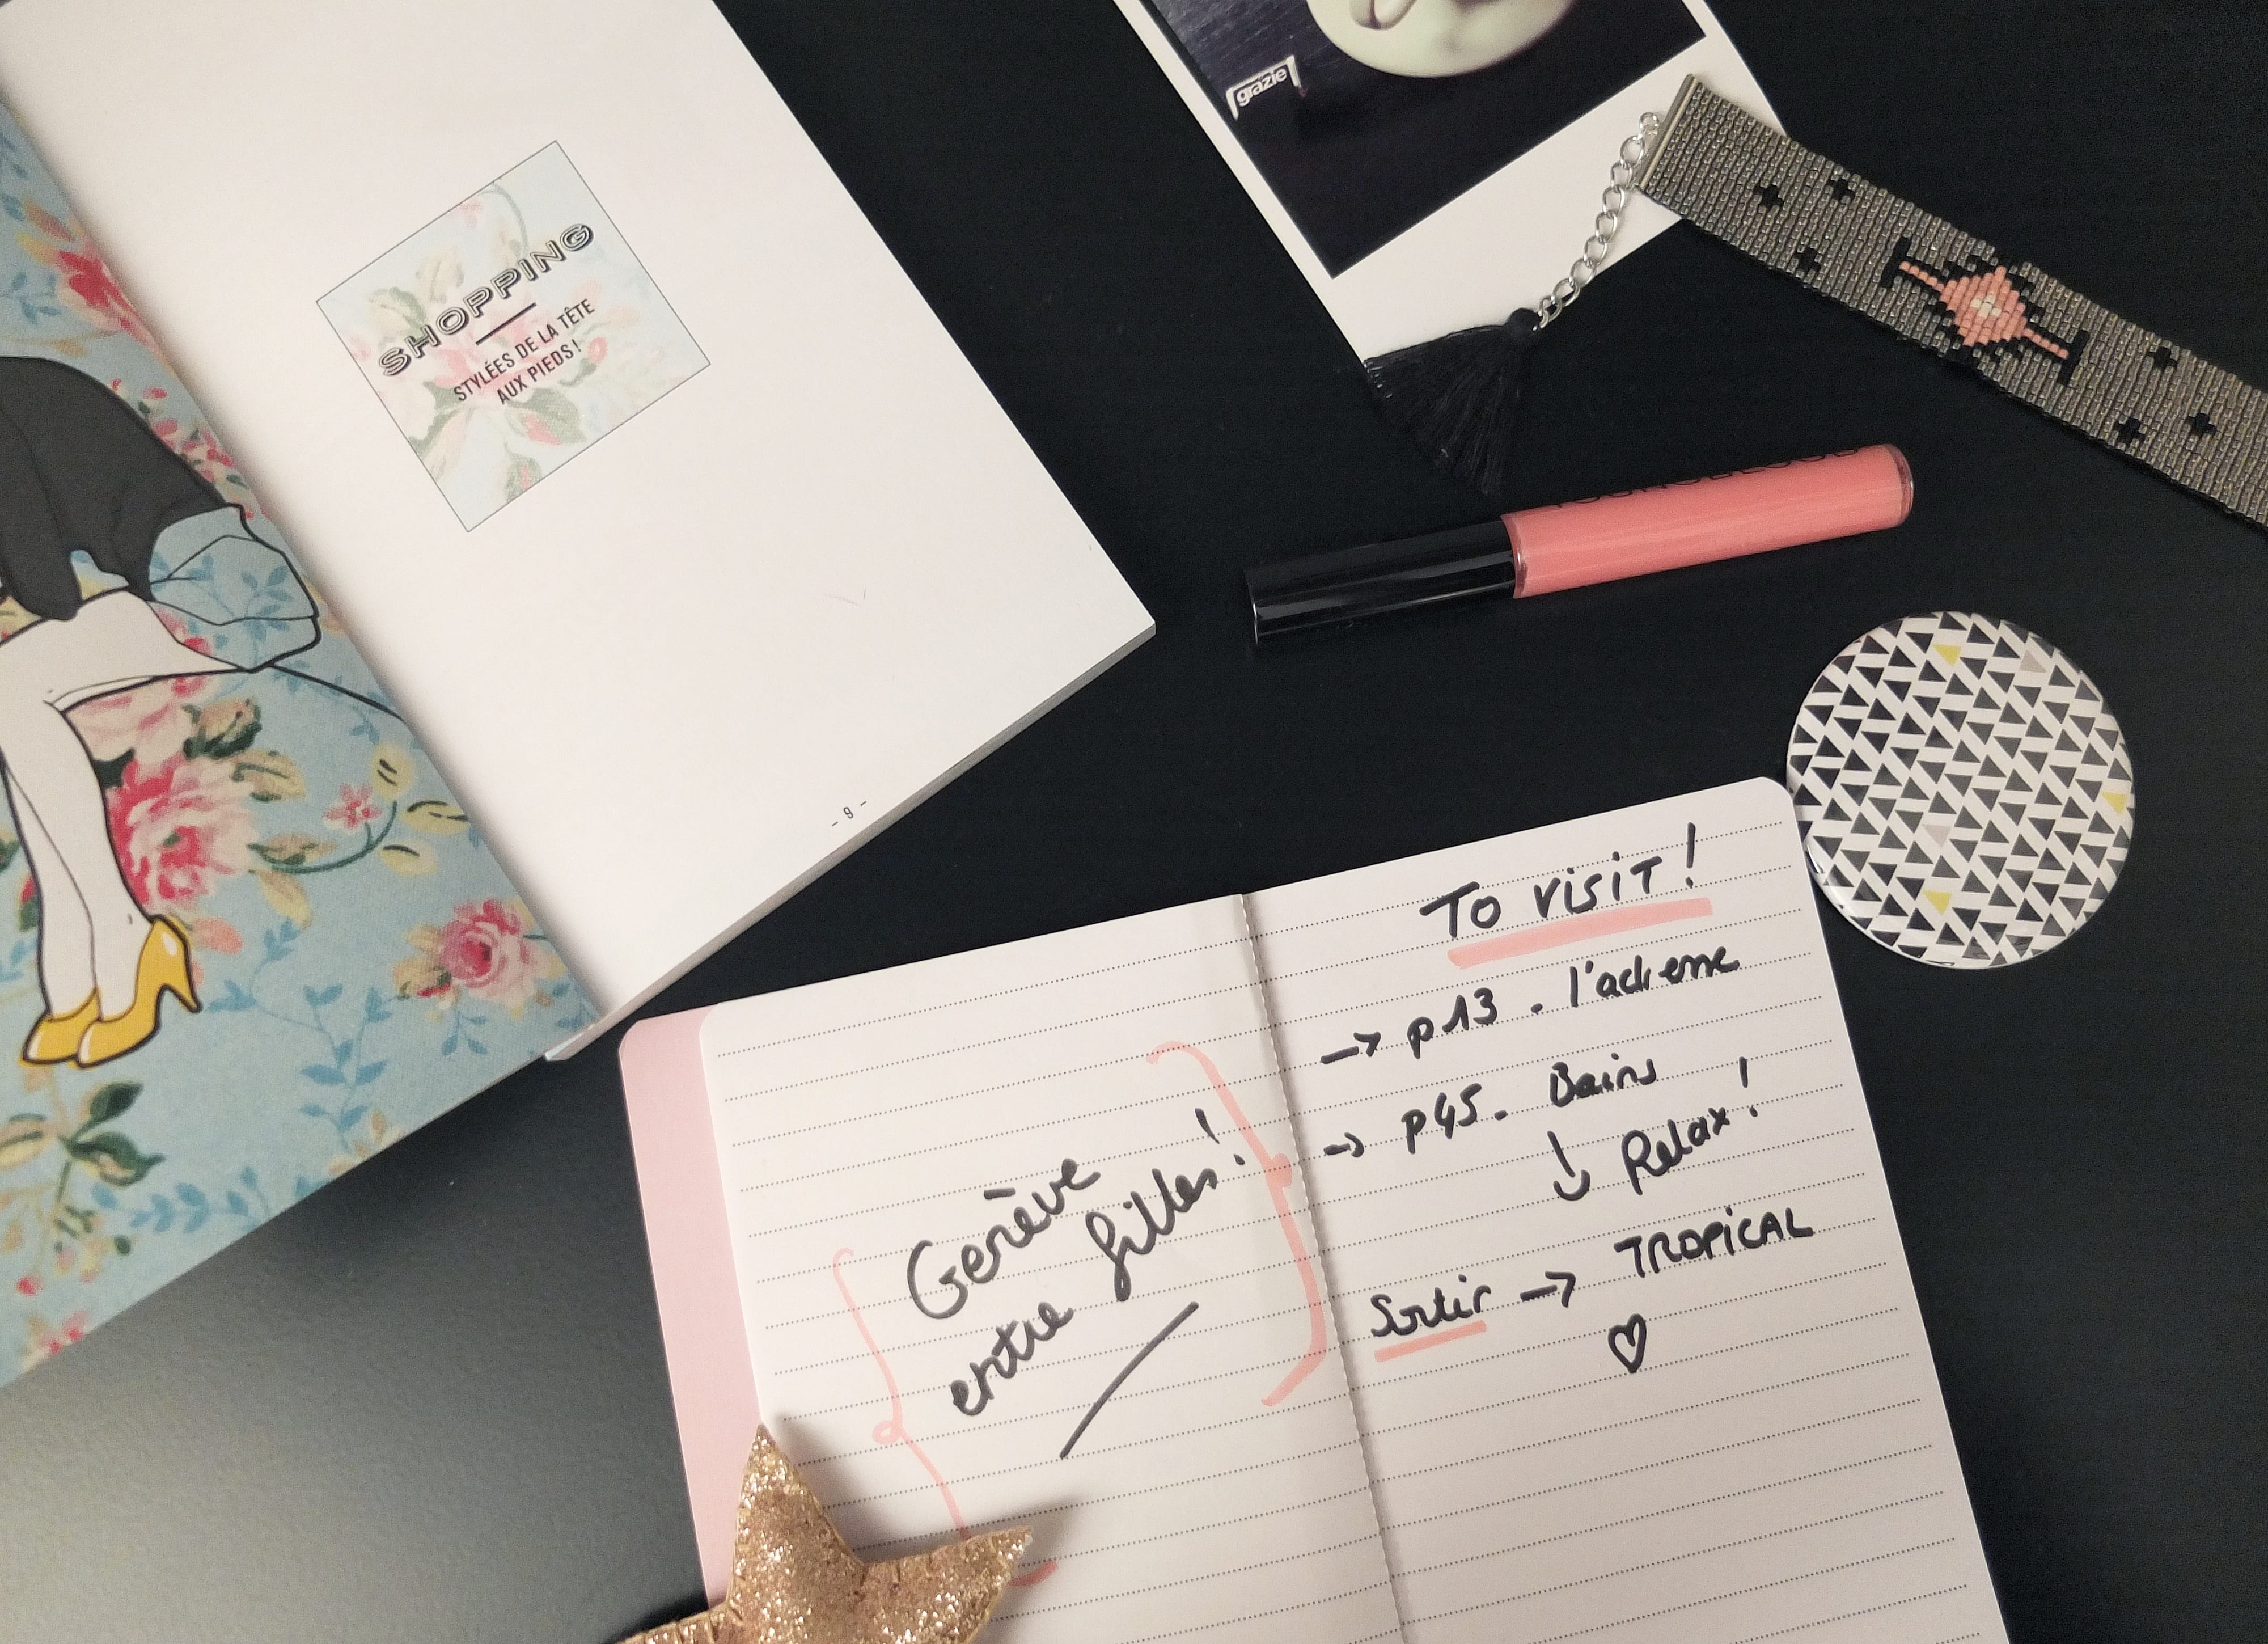 SHOPPING
STYLÉES DE LA TÊTE
AUX PIEDS !
- 9 -
grazie
YOUNGBLOOD
Genève
entre filles !
TO VISIT !
-> p13 . l'adresse
-> p45 . Bains
Relax !
Sortir -> TROPICAL